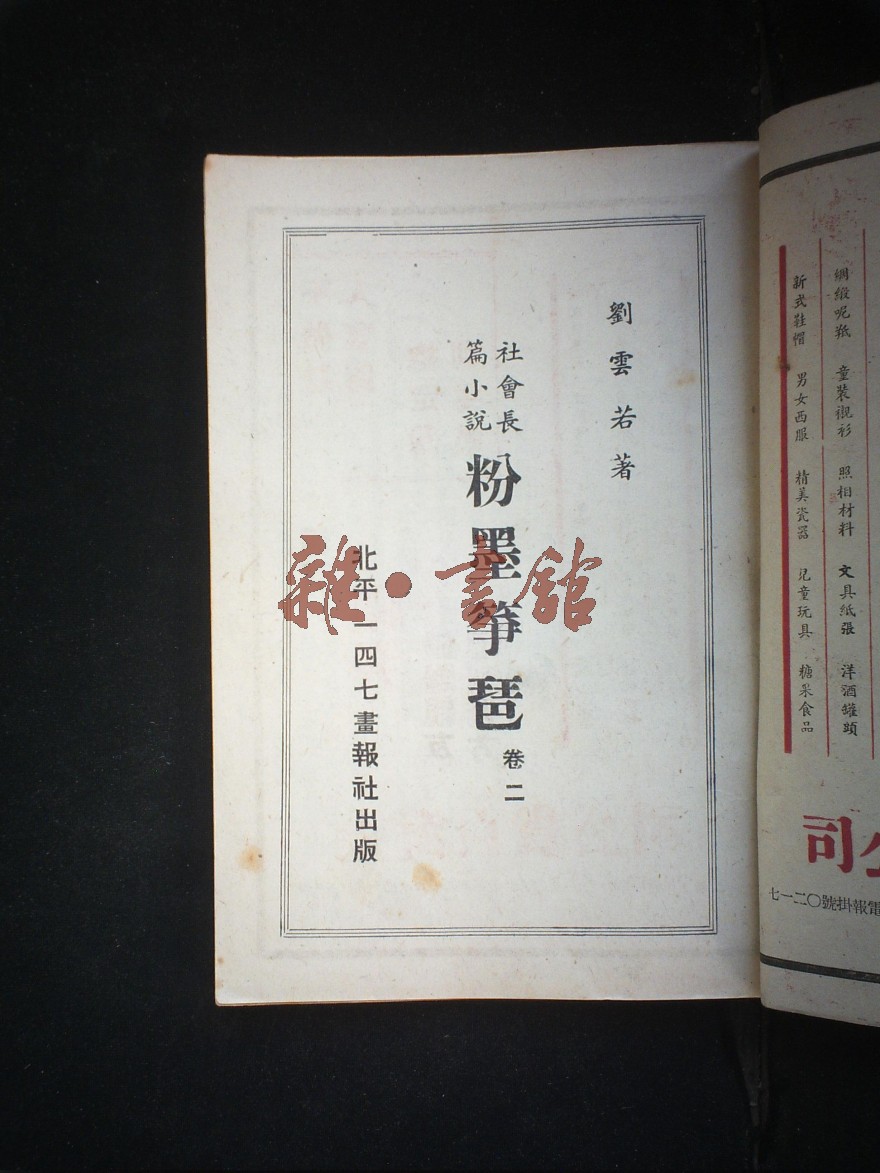 綢緞呢羢　童裝襯衫　照相材料　文具紙張　洋酒罐頭
新式鞋帽　男女西服　精美瓷器　兒童玩具　糖果食品
公司
電報掛號〇二一七
劉雲若著
社會長
篇小說
粉墨箏琶
卷二
北平一四七畫報社出版
雜·書館